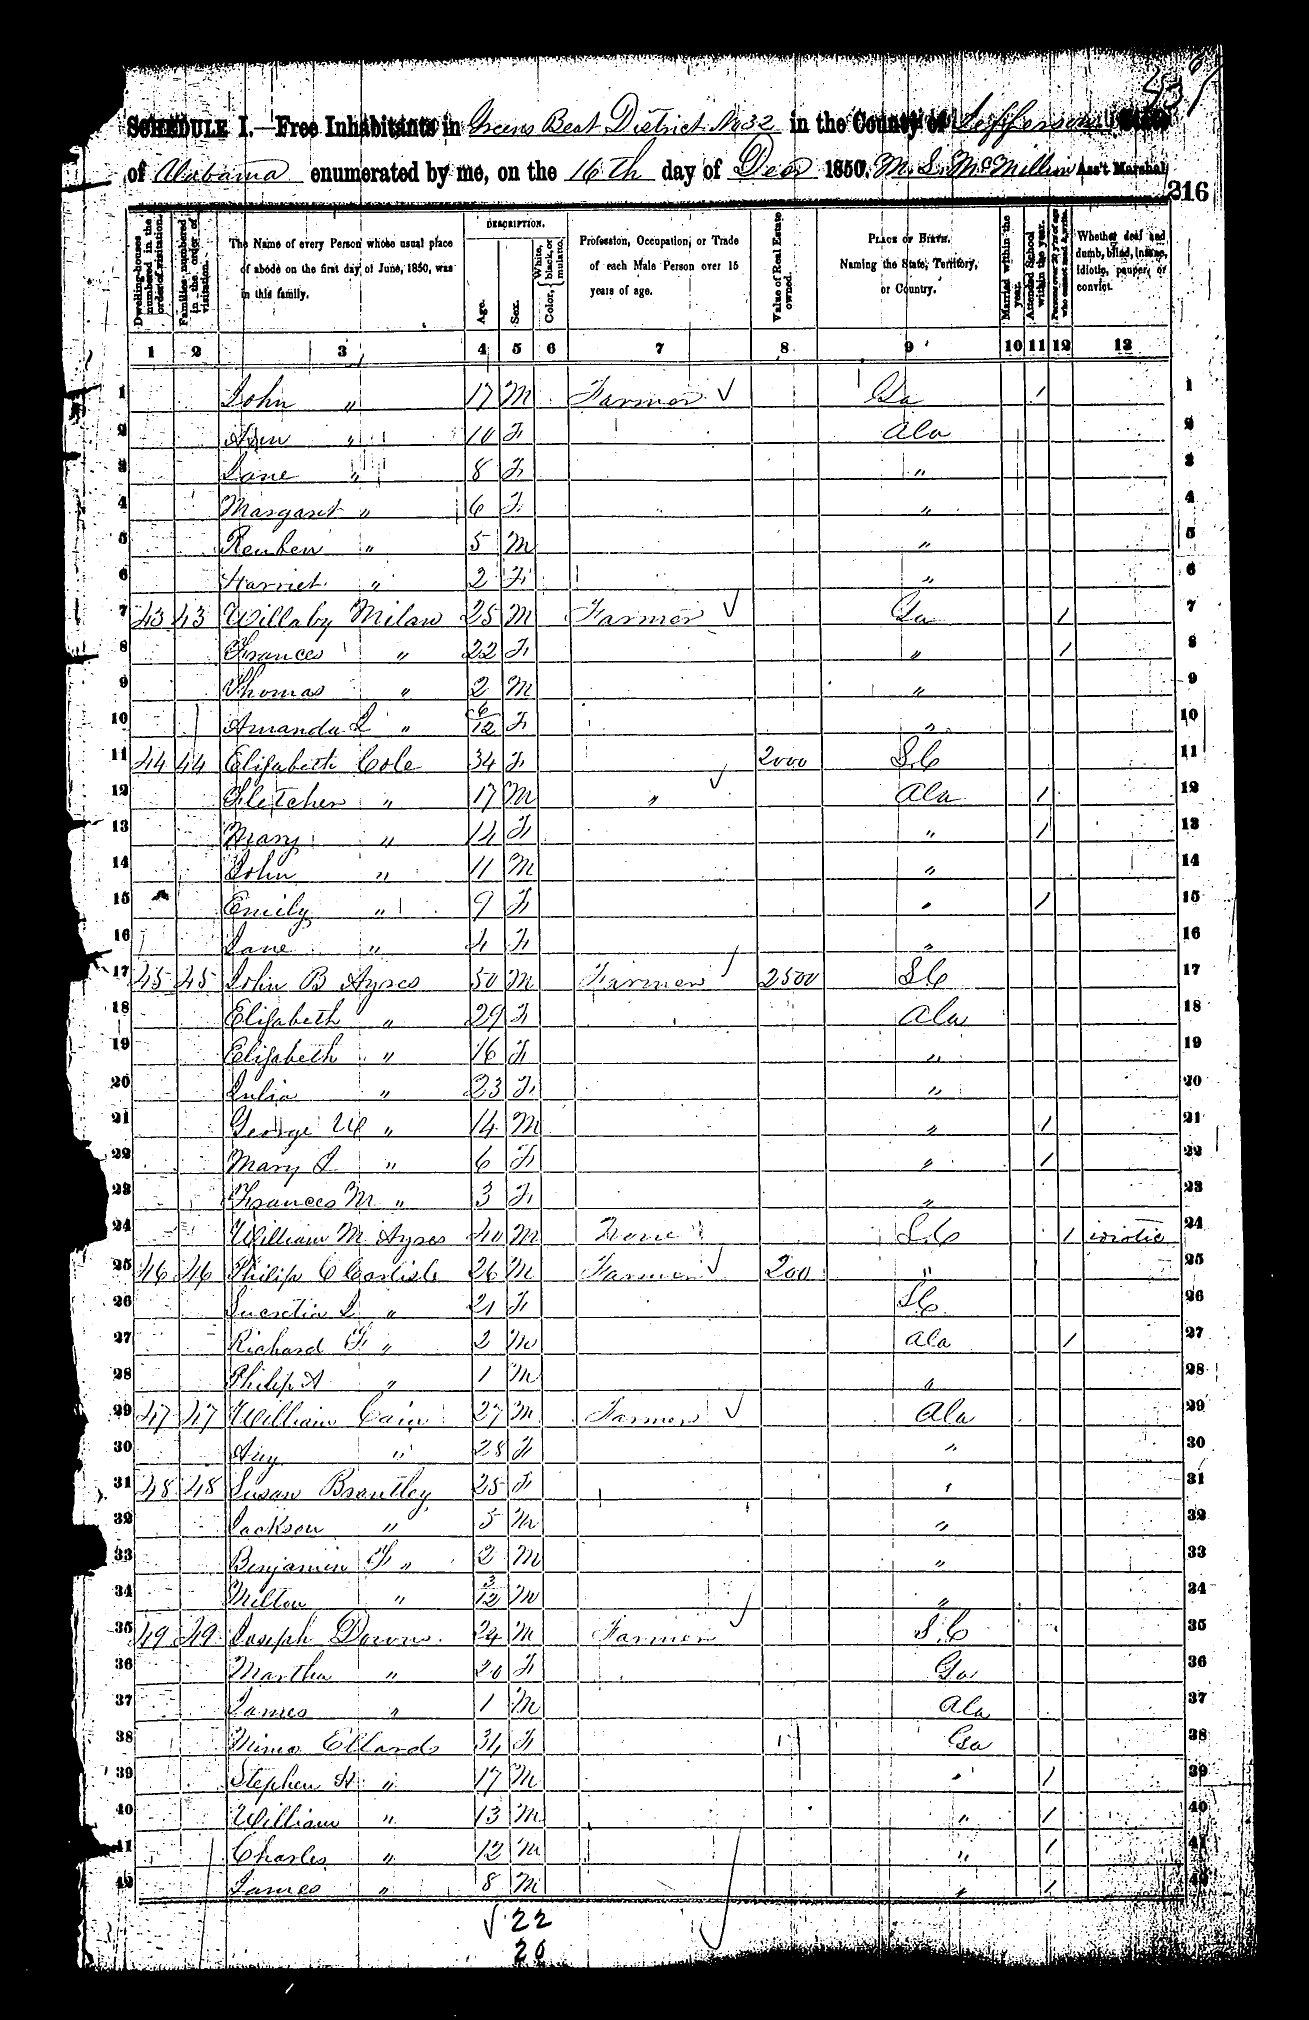 SCHEDULE I.—Free Inhabitants in Greens Beat District No 32 in the County of Jefferson State
of Alabama enumerated by me, on the 16th day of Decr 1850. M. S. McMillion Ass't Marshal.
216
Dwelling-houses numbered in the order of visitation.
Families numbered in the order of visitation.
The Name of every Person whose usual place of abode on the first day of June, 1850, was in this family.
DESCRIPTION.
Age.
Sex.
Color, White, black, or mulatto.
Profession, Occupation, or Trade of each Male Person over 15 years of age.
Value of Real Estate owned.
PLACE OF BIRTH. Naming the State, Territory, or Country.
Married within the year.
Attended School within the year.
Persons over 20 y'rs of age who cannot read & write.
Whether deaf and dumb, blind, insane, idiotic, pauper, or convict.
1 2 3 4 5 6 7 8 9 10 11 12 13
1 John " 17 M Farmer ✓ Ga / 1
2 Ann " 10 F Ala 2
3 Jane " 8 F " 3
4 Margaret " 6 F " 4
5 Reuben " 5 M " 5
6 Harriet " 2 F " 6
7 43 43 Willaby Milam 25 M Farmer ✓ Ga / 7
8 Frances " 22 F " / 8
9 Thomas " 2 M " 9
10 Amanda L " 6/12 F " 10
11 44 44 Elizabeth Cole 34 F 2000 S.C 11
12 Fletcher " 17 M " ✓ Ala / 12
13 Mary " 14 F " / 13
14 John " 11 M " 14
15 Emily " 9 F " / 15
16 Jane " 4 F " 16
17 45 45 John B Ayres 50 M Farmer ✓ 2500 S.C 17
18 Elizabeth " 29 F Ala 18
19 Elizabeth " 16 F " 19
20 Julia " 23 F " 20
21 George W " 14 M " / 21
22 Mary J " 6 F " / 22
23 Frances M " 3 F " 23
24 William M Ayres 40 M None S.C / idiotic 24
25 46 46 Philip C Carlisle 26 M Farmer ✓ 200 " 25
26 Lucretia L " 21 F S.C 26
27 Richard F " 2 M Ala / 27
28 Philip A " 1 M " 28
29 47 47 William Cain 27 M Farmer ✓ Ala 29
30 " 28 F " 30
31 48 48 Susan Brantley 25 F " 31
32 Jackson " 5 M " 32
33 Benjamin F " 2 M " 33
34 Milton " 3/12 M " 34
35 49 49 Joseph Downs 24 M Farmer ✓ S.C 35
36 Martha " 20 F Ga 36
37 James " 1 M Ala 37
38 Ellards 34 F Ga 38
39 Stephen H " 17 M " / 39
40 William " 13 M " / 40
41 Charles " 12 M " / 41
42 James " 8 M " / 42
✓ 22
20